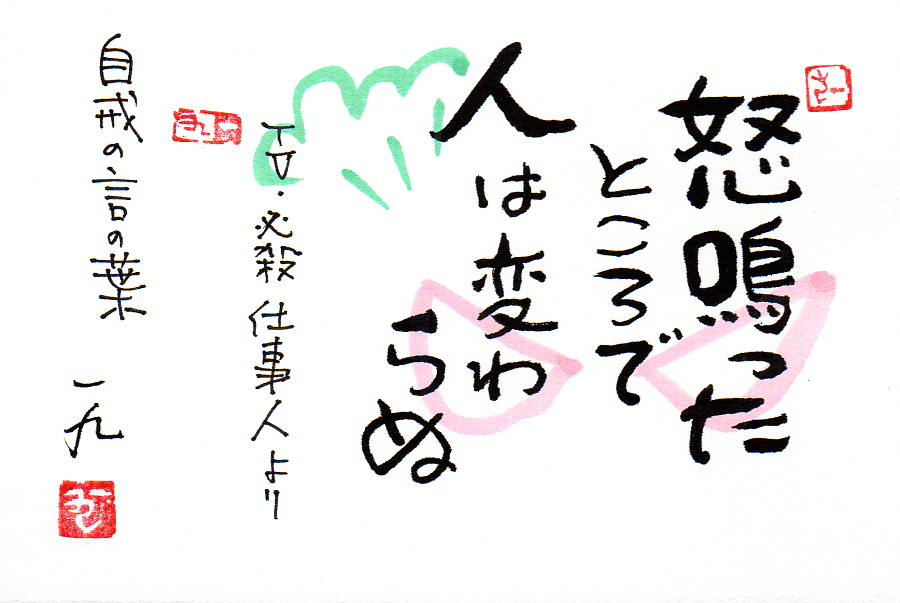 怒鳴った
ところで
人は変わ
らぬ
TV・必殺仕事人より
自戒の言の葉
一九